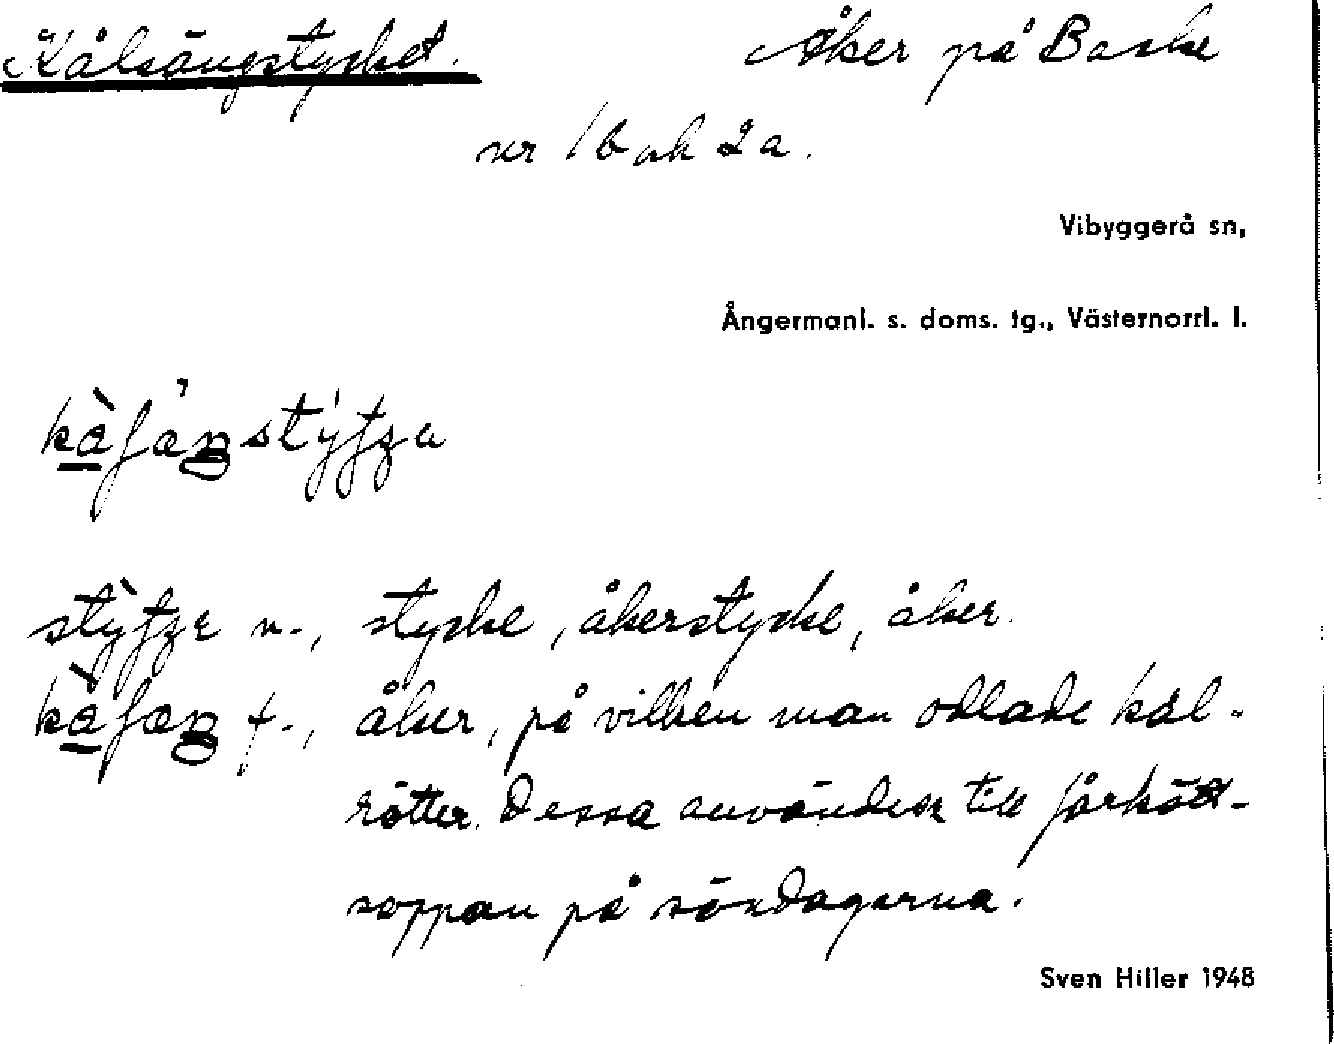 Kålsängstycket. Åker på Baske
nr 1b och 2a.
Vibyggerå sn,
Ångermanl. s. doms. tg., Västernorrl. l.
stycke, åkerstycke, åker.
f., åker, på vilken man odlade kål-
rötter. Dessa användes till fårkött-
soppan på söndagarna.
Sven Hiller 1948